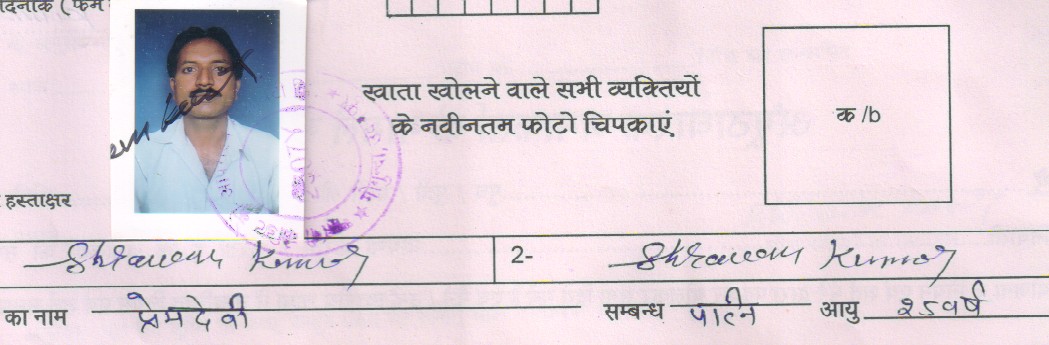 दिनांक (फर्म
खाता खोलने वाले सभी व्यक्तियों
के नवीनतम फोटो चिपकाएं
क /b
हस्ताक्षर
Shrawan Kumar 2- Shrawan Kumar
का नाम प्रेमदेवी सम्बन्ध पत्नि आयु २८ वर्ष